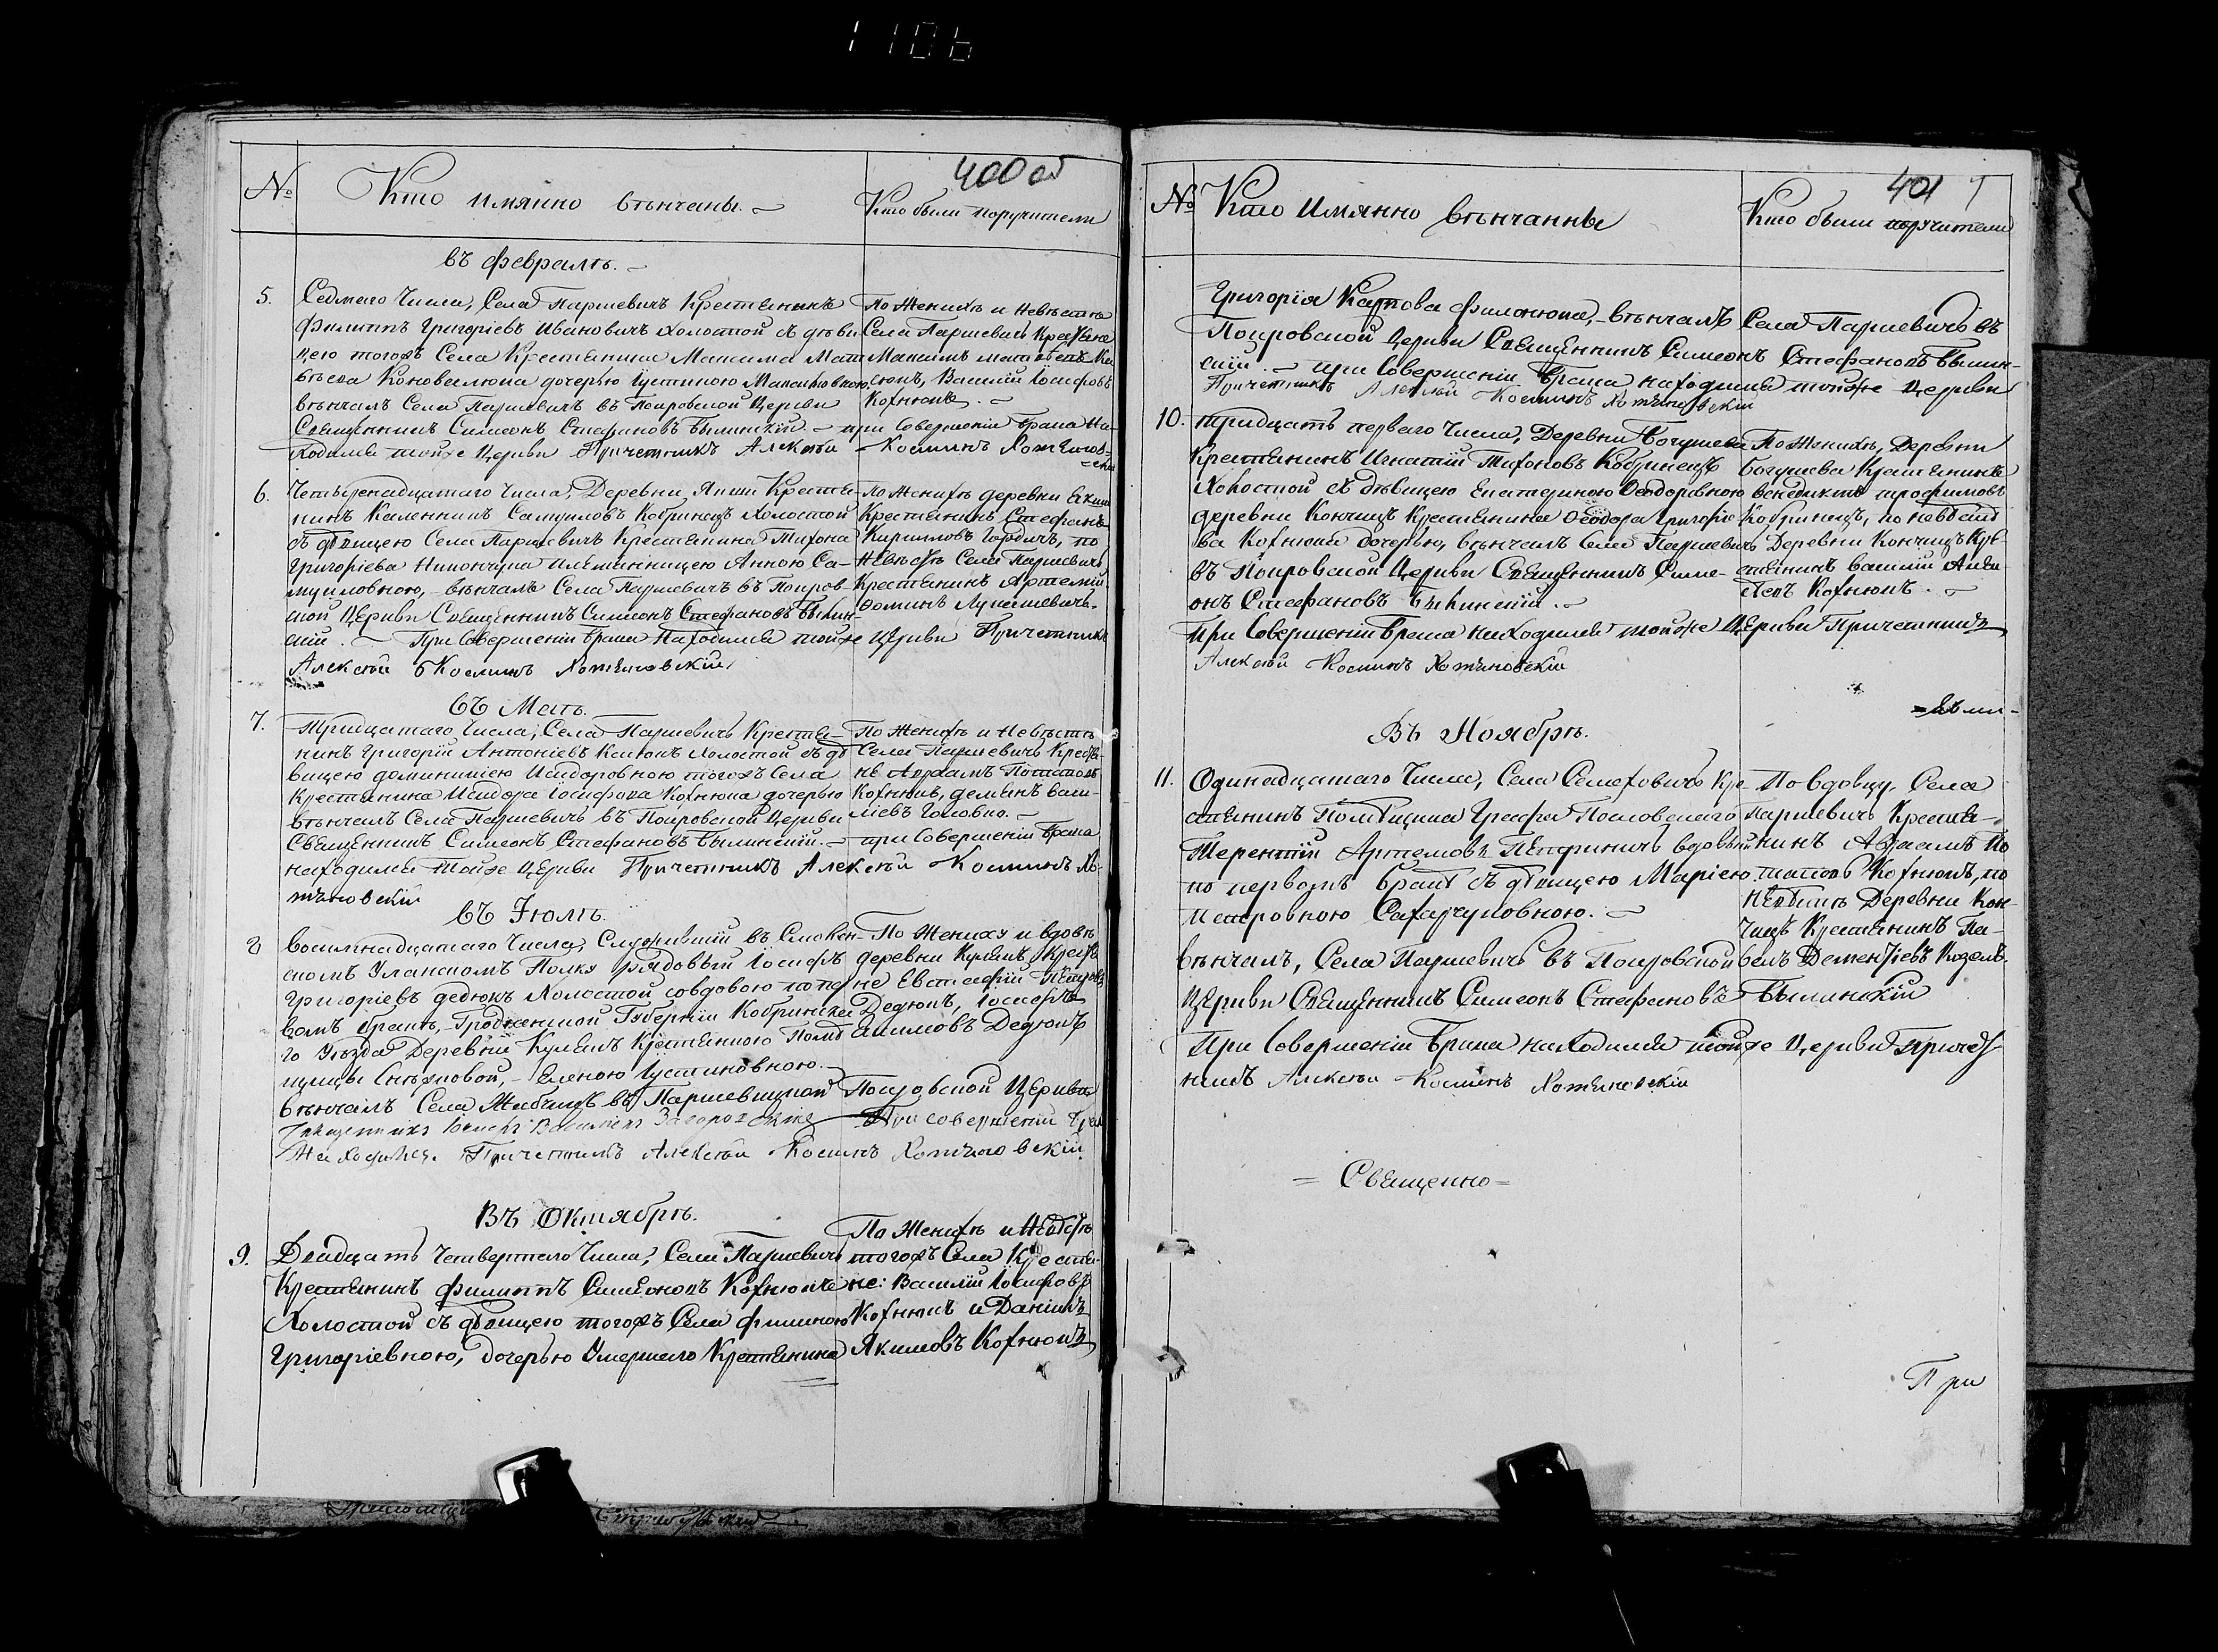 1106
400 об
№ Кто имянно вѣнчаны.
Кто были поручители
въ февралѣ.
5. Седмаго Числа, Села Паршевичъ Крестянинъ
Филиппъ Григоріевъ Ивановичъ холостой съ дѣви
цею тогожъ Села Крестянина Максима Мат
вѣева Коновалюка дочерью Іустиною Максимовною,
вѣнчалъ Села Паршевичъ въ Покровской Церкви
Священникъ Симеонъ Стефановъ Былинскій. – при Совершеніи брака На-
ходился тойже Церкви Причетникъ Алексѣй Косминъ Хотѣнов-
скій
По Женихѣ и Невѣстѣ
Села Паршевичъ Крестяне
Максимъ Матвѣевъ
Василій Іосифовъ
Кохнюкъ. –
6. Четырнадцатаго Числа, Деревни Якши Крестя-
нинъ Каленникъ Самуиловъ Кобринецъ Холостой
съ дѣвицею Села Паршевичъ Крестянина Тихона
Григоріева племянницею Анною Са-
муиловною, – вѣнчалъ Села Паршевичъ въ Покров-
ской Церкви Священникъ Симеонъ Стефановъ Былин-
скій. – При Совершеніи брака Находился тойже Церкви Причетникъ
Алексѣй Косминъ Хотѣновскій
По Женихѣ деревни
Крестянинъ Стефанъ
Кириловъ Гордичъ, по
Невѣстѣ Села Паршевичъ
Крестянинъ Артемій
Фоминъ Лукашевичъ.
въ Маѣ.
7. Тридцатаго Числа, Села Паршевичъ Крестя-
нинъ Григорій Антоніевъ холостой съ дѣ
вицею Доминикіею Исидоровною тогожъ Села
Крестянина Исидора Іосифова Кохнюка дочерью
вѣнчалъ Села Паршевичъ въ Покровской Церкви
Священникъ Симеонъ Стефановъ Былинскій. – при Совершеніи брака
находился Тойже Церкви Причетникъ Алексѣй Косминъ Хо-
тѣновскій
По Женихѣ и Невѣстѣ
Села Паршевичъ Крестя-
не Авраамъ Потаповъ
Кохнюкъ, Демянъ Васи-
ліевъ Головко. –
въ Іюлѣ.
8 Восимнадцатаго Числа, Служившій въ Смолен-
скомъ Уланскомъ Полку рядовый Іосифъ
Григоріевъ Дедюкъ Холостой совдовою по пер
вомъ бракѣ, – Гродненской Губерніи Кобринска
го Уѣзда Деревни Крестянкою Помѣ
щицы – Еленою Іустиновною. –
вѣнчалъ Села Жабчицъ въ Паршевицкой Покровской Церкви
Священникъ При совершеніи брака
Находился. Причетникъ Алексѣй Косминъ Хотѣновскій
По Жениху и вдовѣ
деревни Крестя
не Евстафій
Дедюкъ, Іосифъ
Дедюкъ
Въ Октябрѣ.
9. Двадцать Четвертаго Числа, Села Паршевичъ
Крестянинъ Филиппъ Симеоновъ Кохнюкъ
Холостой съ дѣвицею тогожъ Села Филиною
Григоріевною, дочерью Умершаго Крестянина
По Женихѣ и Невѣстѣ
тогожъ Села Крестя-
не: Василій Іосифовъ
Кохнюкъ и Даніилъ
Якимовъ Кохнюкъ
401
№ Кто Имянно вѣнчанны
Кто были поручители
Григорія Карпова Филонюка, – вѣнчалъ Села Паршевичъ въ
Покровской Церкви Священникъ Симеонъ Стефановъ Былин-
скій. – при Совершеніи Брака находился тойже Церкви
Причетникъ Алексѣй Косминъ Хотѣновскій
10. Тридцать перваго Числа, Деревни Богушева
Крестянинъ Игнатій Тихоновъ Кобринецъ
Холостой съ дѣвицею Екатериною Феодоровною
деревни Кончицъ Крестянина Феодора Григоріе
ва Кохнюка дочерью, вѣнчалъ Села Паршевичъ
въ Покровской Церкви Священникъ Симе-
онъ Стефановъ Былинскій. –
при Совершеніи брака находился тойже Церкви Причетникъ
Алексѣй Косминъ Хотѣновскій
По Женихѣ, Деревни
Богушева Крестянинъ
Венедиктъ Трофимовъ
Кобринецъ, по Невѣстѣ
Деревни Кончицъ Кре-
стянинъ Василій Алек-
Кохнюкъ. –
Въ Ноябрѣ.
11. Одинадцатаго Числа, Села Семеховичъ Кре
стянинъ Помѣщика Графа
Терентій Артемовъ вдовый
по первомъ бракѣ съ дѣвицею Маріею
–
вѣнчалъ, Села Паршевичъ въ Покровской
Церкви Священникъ Симеонъ Стефановъ Былинскій
При Совершеніи Брака находился тойже Церкви Причет-
никъ Алексѣй Косминъ Хотѣновскій
По вдовцу, Села
Паршевичъ Крестя-
нинъ Авраамъ По
таповъ Кохнюкъ, по
Невѣстѣ Деревни Кон-
чицъ Крестянинъ Па-
велъ Дементіевъ Козелъ.
= Священно =
При